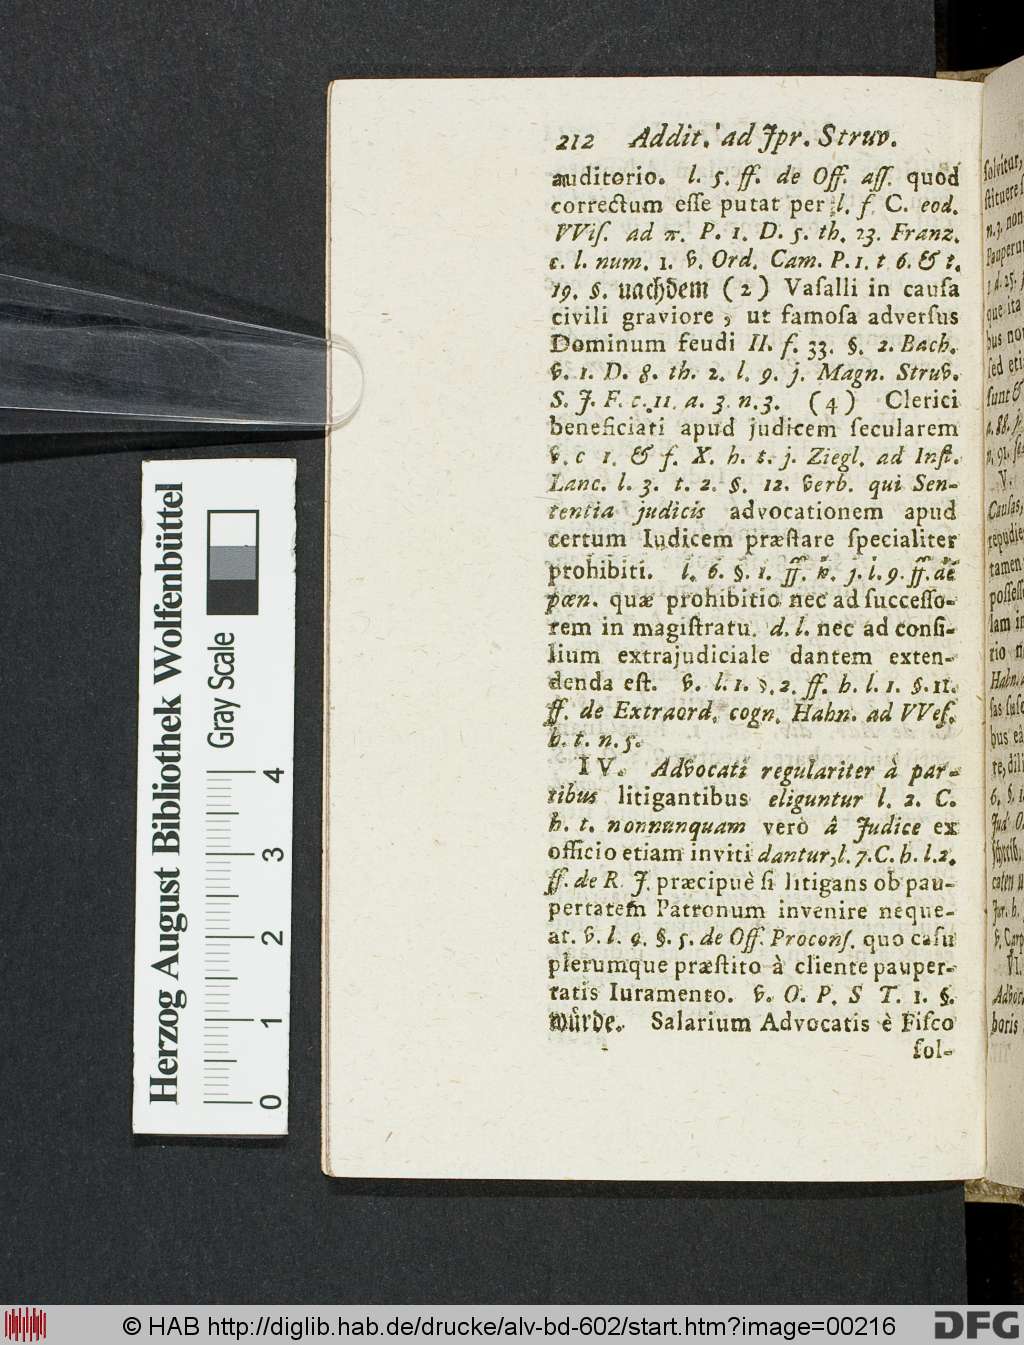 212 Addit. ad Jpr. Struv.
auditorio. l. 5. ff. de Off. aſſ. quod
correctum eſſe putat per l. f C. eod.
VViſ. ad π. P. 1. D. 5. th. 23. Franz.
c. l. num. 1. v. Ord. Cam. P. 1. t 6. & t.
19. §. nachdem (2) Vaſalli in cauſa
civili graviore, ut famoſa adverſus
Dominum feudi II. f. 33. §. 2. Bach.
v. 1. D. 8. th. 2. l. 9. j. Magn. Struv.
S. J. F. c. 11. a. 3. n. 3. (4) Clerici
beneficiati apud judicem ſecularem
v. c 1. & f. X. h. t. j. Ziegl. ad Inſt.
Lanc. l. 3. t. 2. §. 12. verb. qui Sen-
tentia judicis advocationem apud
certum Iudicem præſtare ſpecialiter
prohibiti. l. 6. §. 1. ff. h. j. l. 9. ff. de
pœn. quæ prohibitio nec ad ſucceſſo-
rem in magiſtratu. d. l. nec ad conſi-
lium extrajudiciale dantem exten-
denda eſt. v. l. 1. §. 2. ff. h. l. 1. §. 11.
ff. de Extraord. cogn. Hahn. ad VVeſ.
h. t. n. 5.
IV. Advocati regulariter à par-
tibus litigantibus eliguntur l. 2. C.
h. t. nonnunquam verò â Judice ex
officio etiam inviti dantur, l. 7. C. h. l. 2.
ff. de R. J. præcipuè ſi litigans ob pau-
pertatem Patronum invenire neque-
at. v. l. 9. §. 5. de Off. Proconſ. quo caſu
plerumque præſtito à cliente pauper-
tatis Iuramento. v. O. P. S T. 1. §.
würde. Salarium Advocatis è Fiſco
ſol-
ſolvitur,
ſtituere
n. 3. non
Pauperu
que ita
bus no
ſed eti
ſunt &
V.
Cauſas,
repudie
tamen
poſſeſſ
lam in
rio n
Hahn.
ſas ſuſc
bus eâ
te, dil
6. §. 1.
Jud O.
Schreib.
v. Carp
VI.
Advoc
boris
Herzog August Bibliothek Wolfenbüttel
Gray Scale
0 1 2 3 4
© HAB http://diglib.hab.de/drucke/alv-bd-602/start.htm?image=00216
DFG